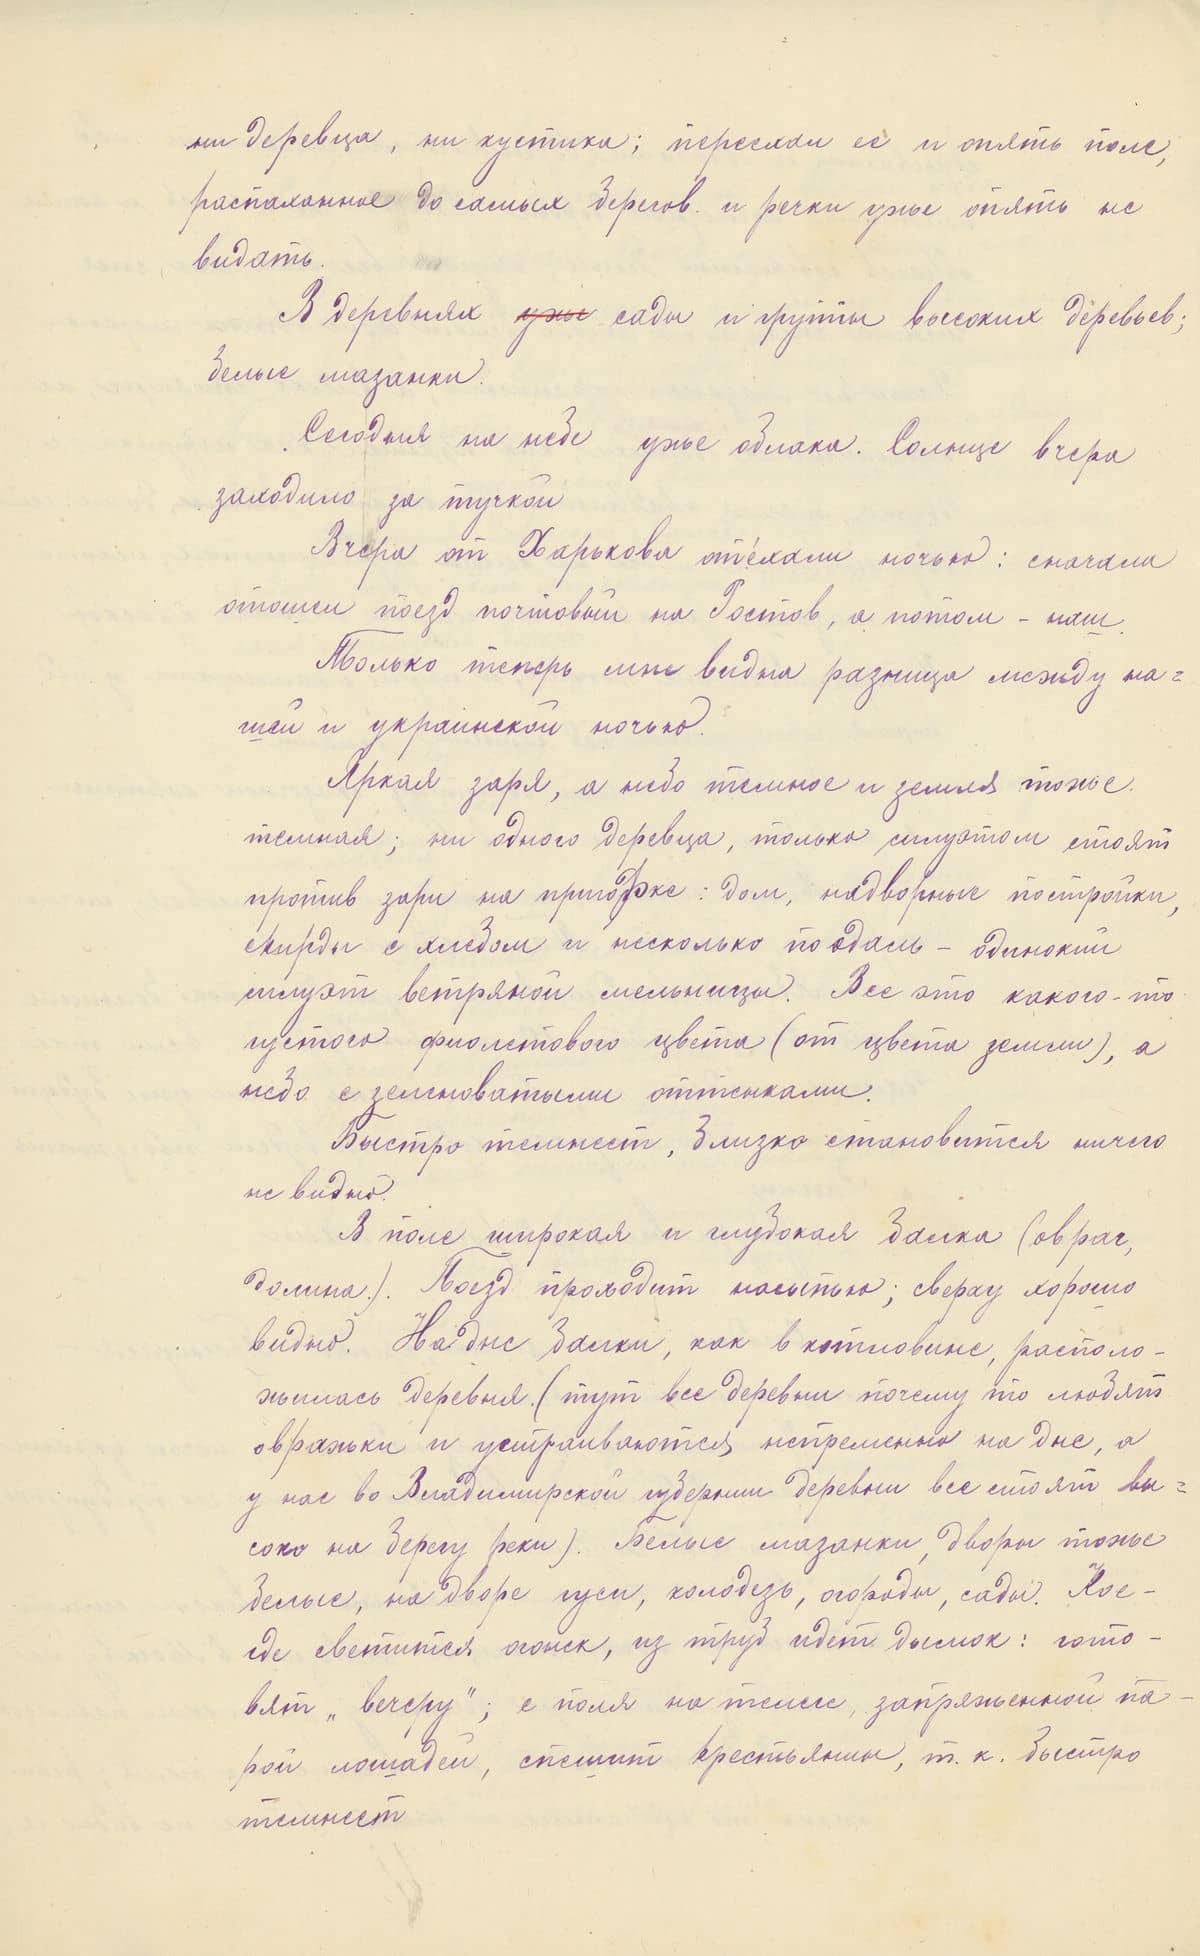 ни деревца, ни кустика; переехали ее и опять поле,
распаханное до самых берегов. и речки уже опять не
видать.
В деревнях уже сады и группы высоких деревьев;
белые мазанки.
Сегодня на небе уже облака. Солнце вчера
заходило за тучкой
Вчера от Харькова отъехали ночью: сначала
отошел поезд почтовый на Ростов, а потом - наш.
Только теперь мне видна разница между на=
шей и украинской ночью.
Яркая заря, а небо темное и земля тоже
темная; ни одного деревца, только силуэтом стоят
против зари на пригорке: дом, надворные постройки,
скирды с хлебом и несколько поодаль - одинокий
силуэт ветряной мельницы. Все это какого-то
густого фиолетового цвета (от цвета земли), а
небо с зеленоватыми оттенками.
Быстро темнеет, близко становится ничего
не видно.
В поле широкая и глубокая балка (овраг,
долина). Поезд проходит насыпью; сверху хорошо
видно. На дне балки, как в котловине, располо-
жилась деревня. (тут все деревни почему то любят
овражки и устраиваются непременно на дне, а
у нас во Владимирской губернии деревни все стоят вы=
соко на берегу реки). Белые мазанки, дворы тоже
белые, на дворе гуси, колодезь, огороды, сады. Кое-
где светится огонек, из труб идет дымок: гото-
вят „вечерю"; с поля на телеге, запряженной па-
рой лошадей, спешит крестьянин, т. к. быстро
темнеет